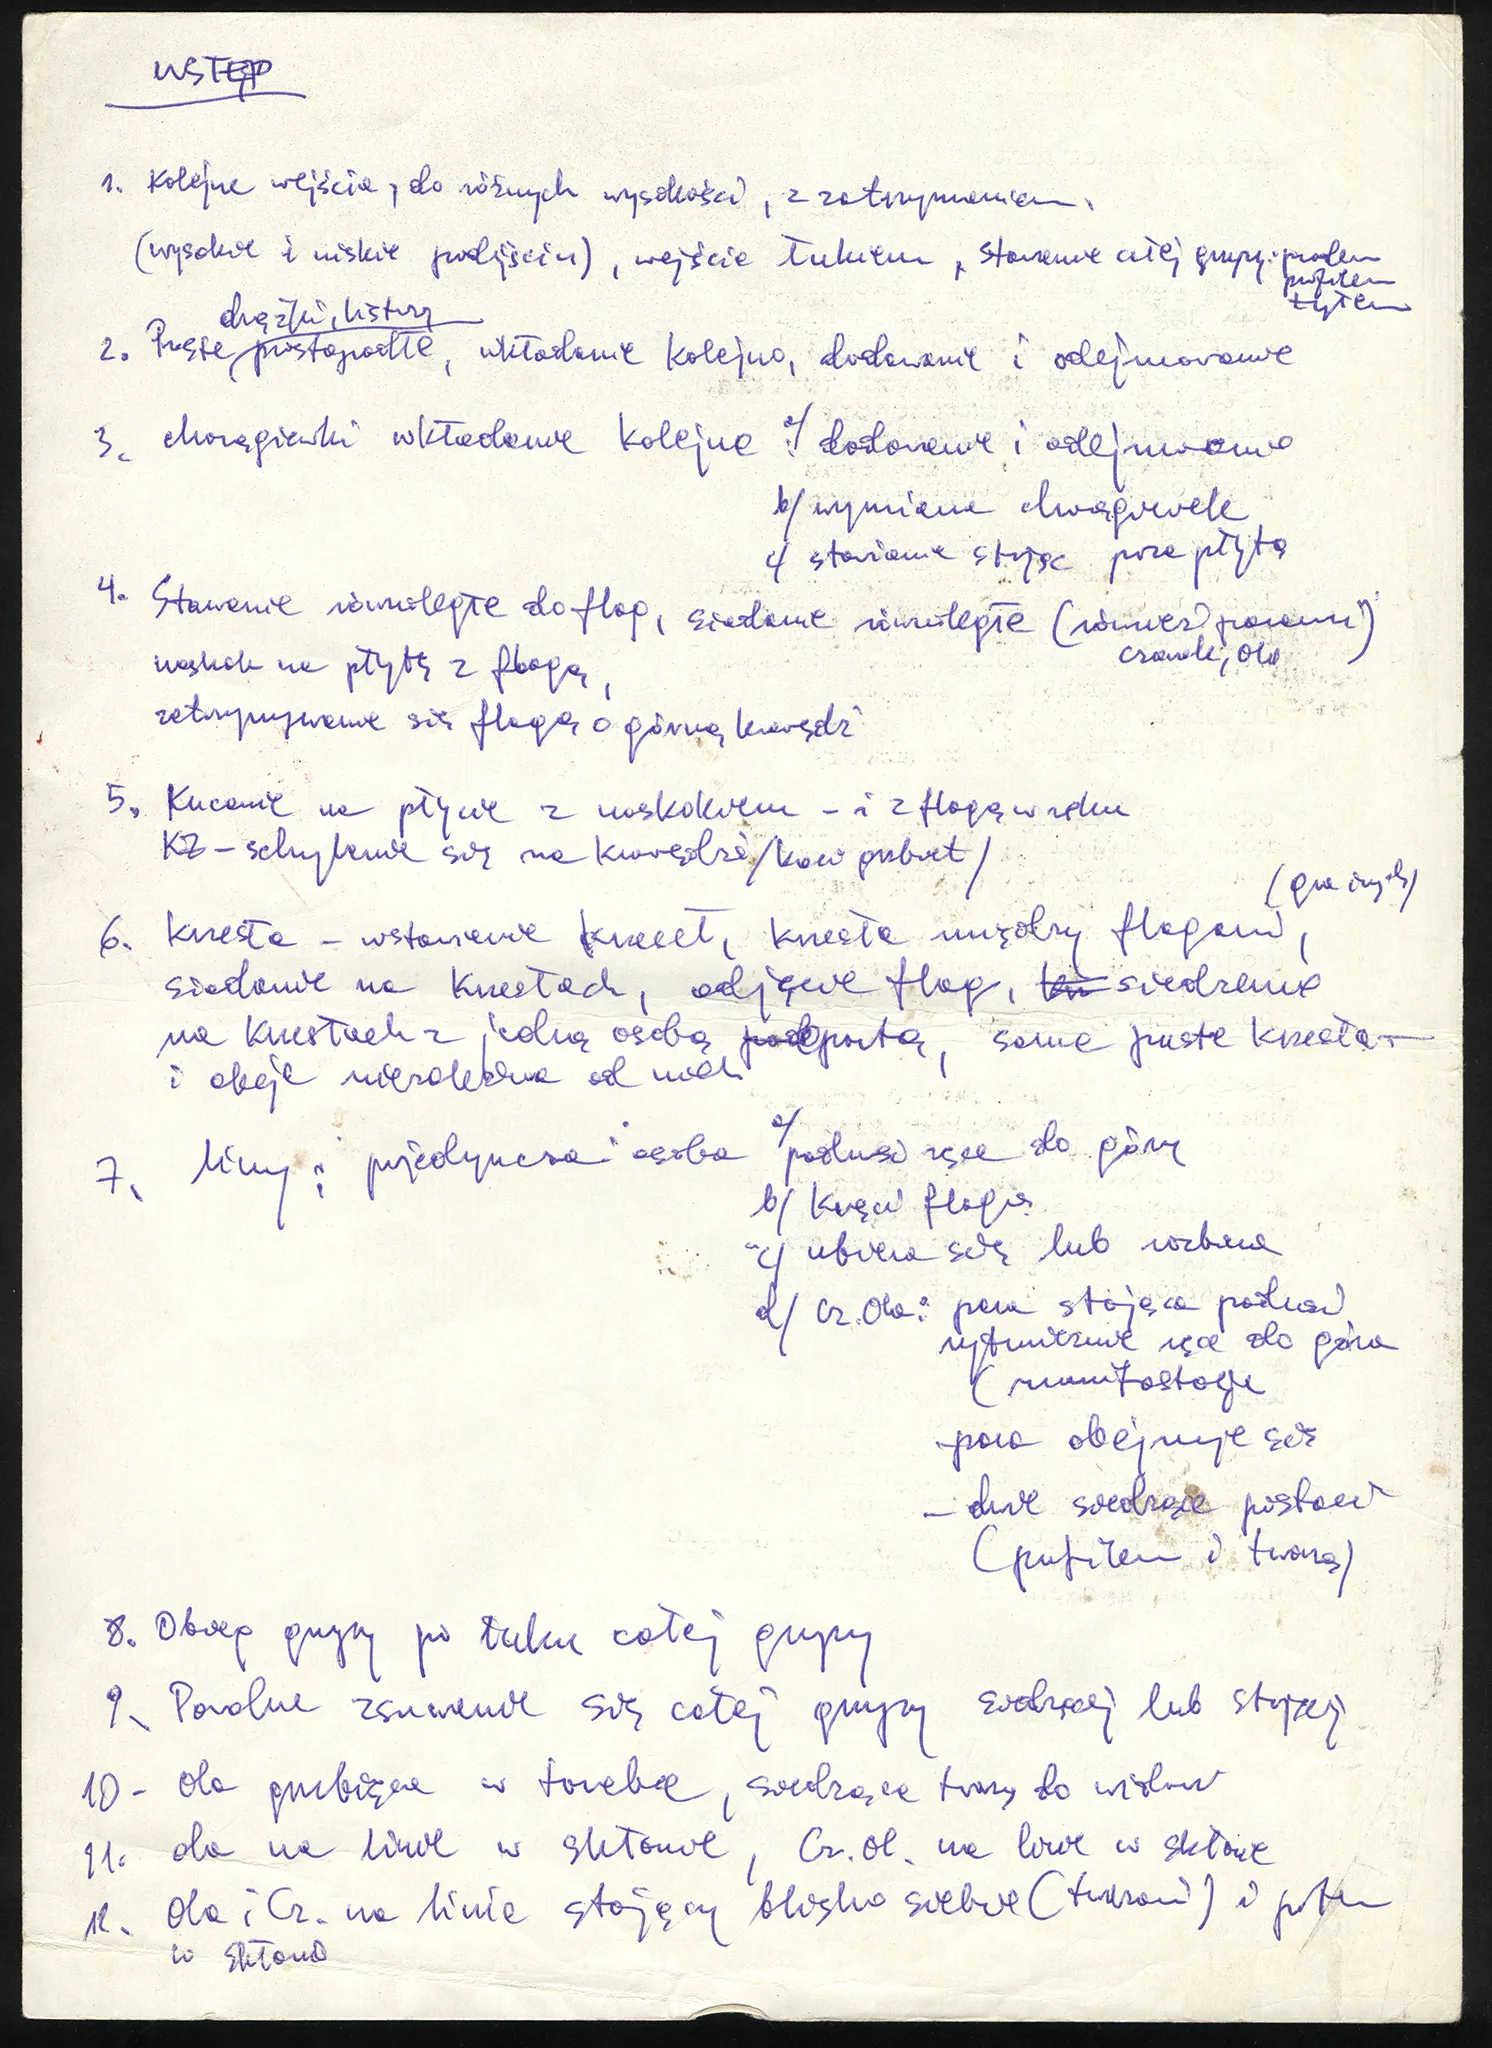 WSTĘP
1. Kolejne wejścia, do różnych wysokości, z zatrzymaniem.
(wysokie i niskie podejścia), wejście łukiem, stawanie całej grupy: przodem
profilem
tyłem
drążki, listwy
2. Proste, prostopadłe, wkładanie kolejno, dodawanie i odejmowanie
3. chorągiewki wkładanie kolejne a/ dodawanie i odejmowanie
b/ wymiana chorągiewek
c/ stawianie stojąc poza płytą
4. Stawanie równoległe do flag, siadanie równoległe (również parami)
Czarek, Ola
naskok na płytę z flagą,
zatrzymywanie się flagą o górną krawędź
5. Kucanie na płycie z naskokiem – i z flagą w ręku
KZ – schylanie się na krawędzi / koci grzbiet /
6. Krzesła – wstawianie krzeseł, krzesła między flagami,
siadanie na krzesłach, odjęcie flag, siedzenie
na krzesłach z jedną osobą podpartą, same puste krzesła –
i akcje niezależne od nich
7. liny: pojedyncza osoba a/ podnosi ręce do góry
b/ kręci flagą
c/ ubiera się lub rozbiera
d/ Cz. Ola: para stojąca podnosi
rytmicznie ręce do góry
(manifestacje
– para obejmuje się
– dwie siedzące postaci
(profilem i twarzą)
8. Obieg grupy po łuku całej grupy
9. Powolne zsuwanie się całej grupy siedzącej lub stojącej
10 – Ola grzebiąca w torebce, siedząca twarzą do widowni
11. Ola na linie w skłonie, Cz. Ol. na linie w skłonie
12. Ola i Cz. na linie stojący blisko siebie (twarzami) i potem
w skłonie